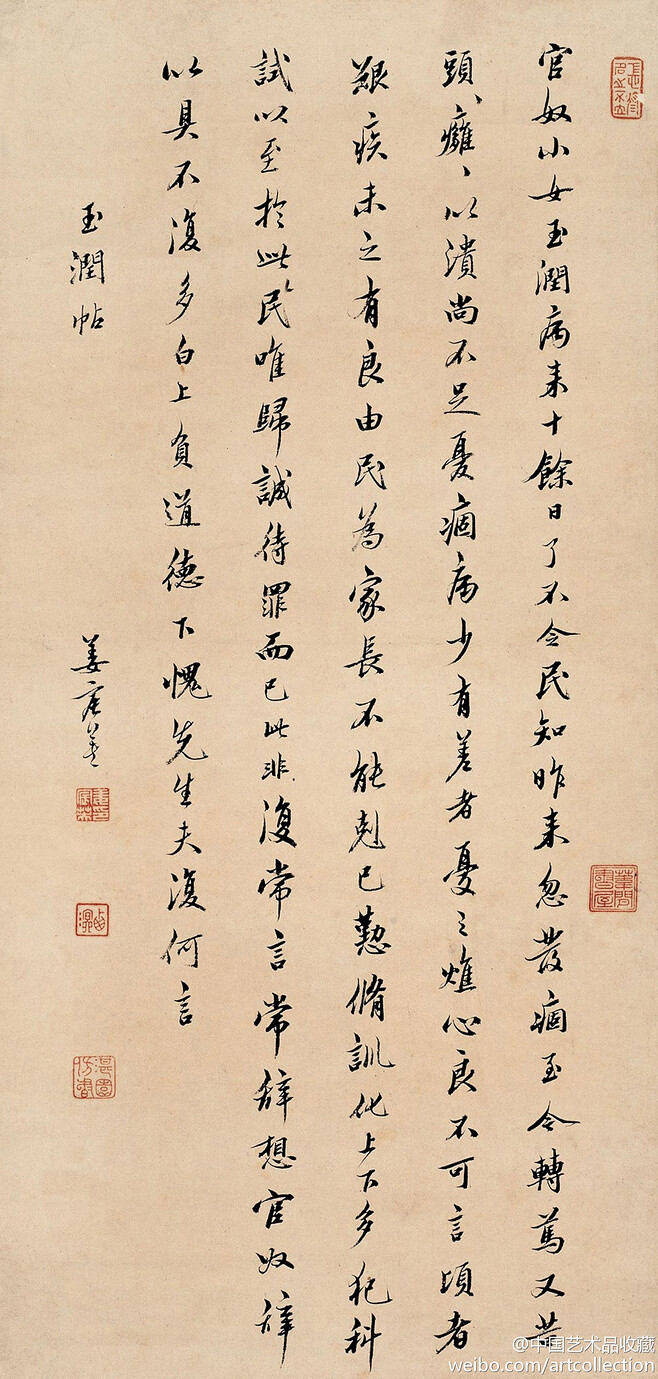 官奴小女玉潤病来十餘日了不令民知昨来忽發痼至今轉篤又苦
頭、癰、以潰尚不足憂痼病少有差者憂之燋心良不可言頃者
艱疾未之有良由民為家長不能剋己懃脩訓化上下多犯科
試以至於此民唯歸誠待罪而已此非復常言常辭想官奴辭
以具不復多白上負道德下愧先生夫復何言
玉潤帖
姜宸英
葦間書屋
@中国艺术品收藏
weibo.com/artcollection